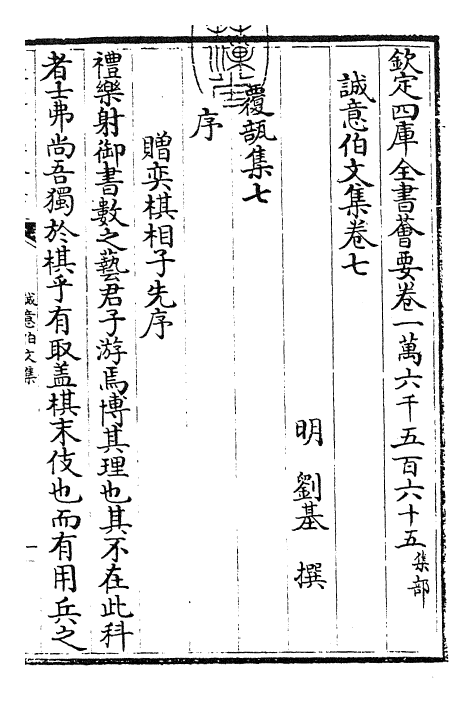 欽定四庫全書薈要卷一萬六千五百六十五集部
誠意伯文集卷七
明 劉基 撰
覆瓿集七
序
贈奕棋相子先序
禮樂射御書數之藝君子游焉博其理也其不在此科
者士弗尚吾獨於棋乎有取盖棋末伎也而有用兵之
誠意伯文集
一